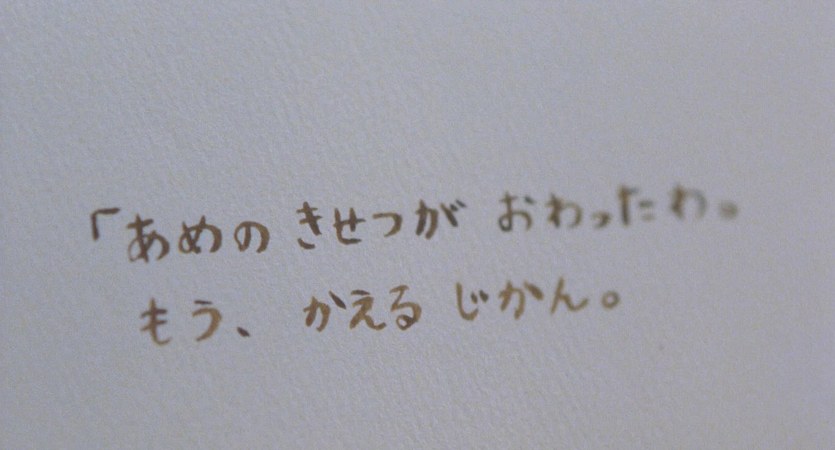 「あめの きせつが おわったわ。
もう、かえる じかん。